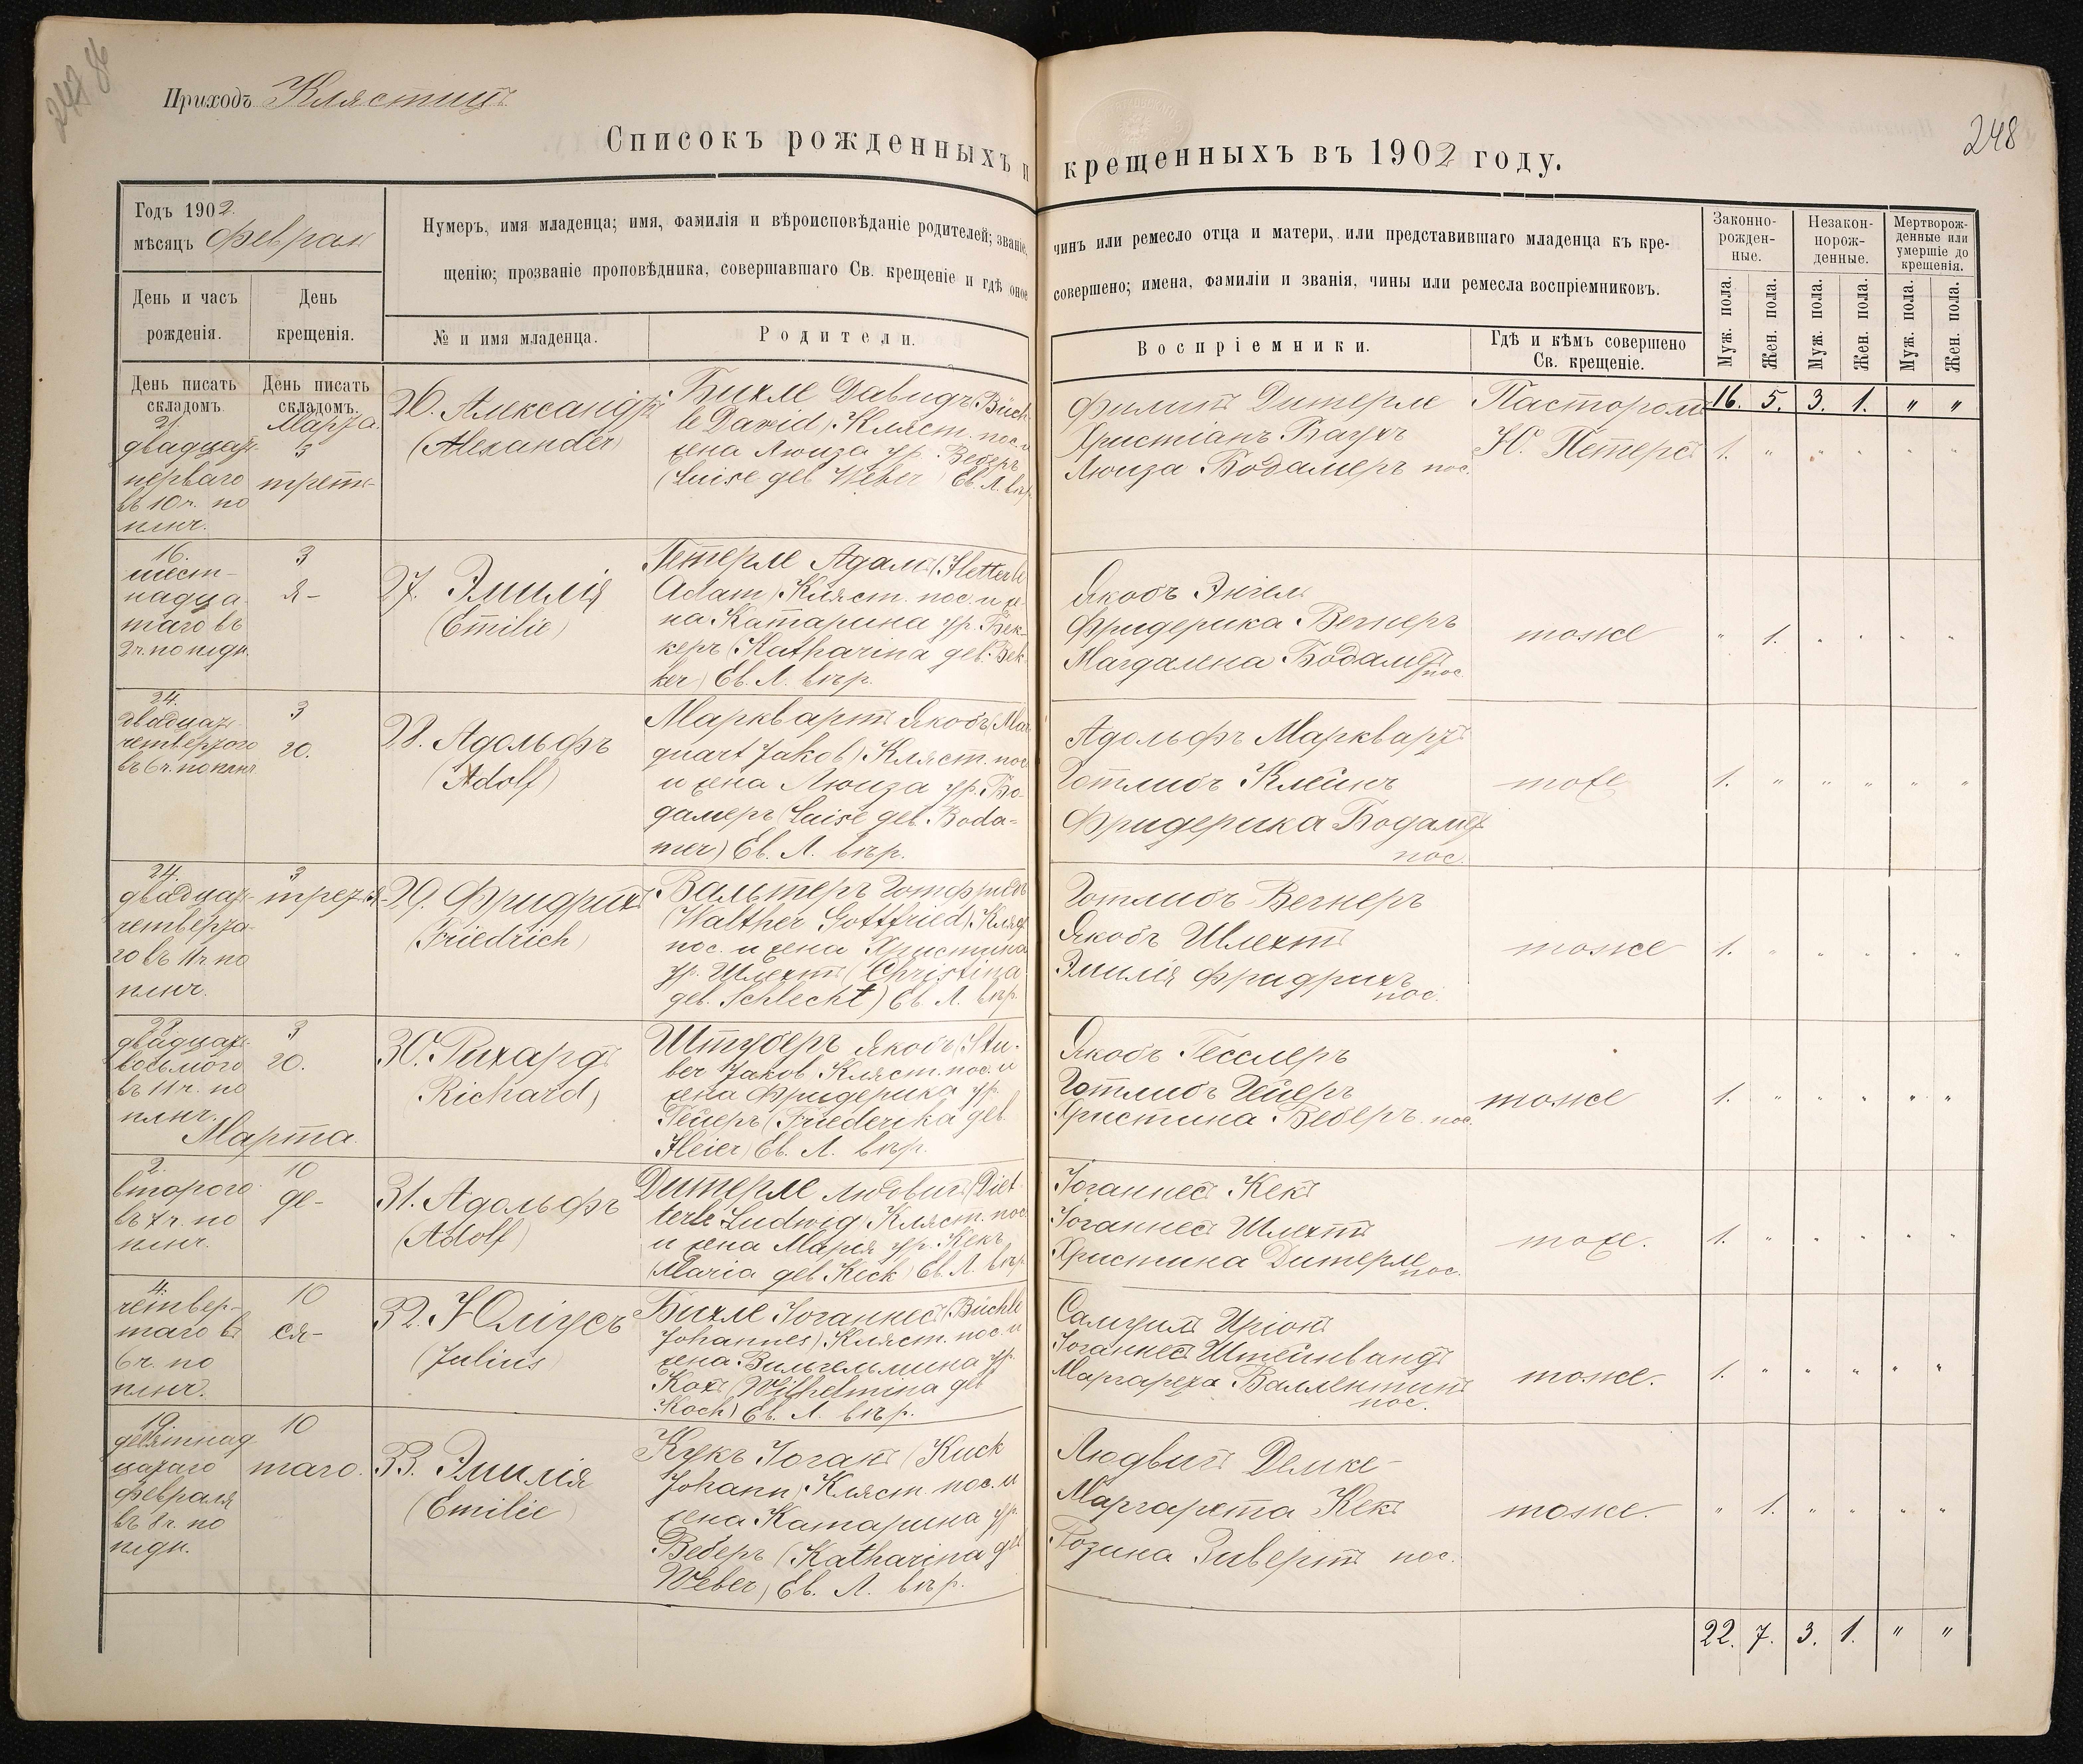 248
Приходъ Клястицъ
Списокъ рожденныхъ и крещенныхъ въ 1902 году.
248
Годъ 1902.
мѣсяцъ Феврал
День и часъ рожденія.
День крещенія.
Нумеръ, имя младенца; имя, фамилія и вѣроисповѣданіе родителей; званіе,
щенію; прозваніе проповѣдника, совершавшаго Св. крещеніе и гдѣ оное
№ и имя младенца.
Родители.
чинъ или ремесло отца и матери, или представившаго младенца къ кре-
совершено; имена, фамиліи и званія, чины или ремесла воспріемниковъ.
Воспріемники.
Гдѣ и кѣмъ совершено
Св. крещеніе.
Законно-
рожден-
ные.
Незакон-
норож-
денные.
Мертворож-
денные или
умершіе до
крещенія.
Муж. пола.
Жен. пола.
Муж. пола.
Жен. пола.
Муж. пола.
Жен. пола.
День писать
складомъ.
День писать
складомъ.
16. 5. 3. 1. " "
21
двадцать
перваго
въ 10 ч. по
плнч.
Марта.
3
треть-
26. Александръ
(Alexander)
Бихле Давидъ (Büch-
le David) Кляст. пос. и
жена Люиза ур. Веберъ
(Luise geb Weber) Ев. Л. вѣр.
Филипъ Дитерле
Христіанъ Баухъ
Люиза Бодамеръ пос.
Пасторомъ
Ю. Петерсъ
1. " " " " "
16.
шест-
надца-
таго въ
2 ч. по плдн.
3
я-
27. Эмилія
(Emilie)
Гетерле Адамъ (Hetterle
Adam) Кляст. пос. и же-
на Катарина ур. Бек-
керъ (Katharina geb. Bek-
ker) Ев. Л. вѣр.
Якобъ Энгель
Фридерика Вегнеръ
Магдалена Бодамеръ
пос.
тоже
" 1. " " " "
24.
двадцать
четвертого
въ 6 ч. по плнч
3
го.
28. Адольфъ
(Adolf)
Марквартъ Якобъ (Mar
quart Jakob) Кляст. пос
и жена Люиза ур. Бо-
дамеръ (Luise geb. Boda-
mer) Ев. Л. вѣр.
Адольфъ Марквартъ
Готлибъ Клейнъ
Фридерика Бодамеръ
пос.
тоже
1. " " " " "
24.
двадцать
четверта-
го въ 11 ч. по
плнч.
3
29. Фридрихъ
(Friedrich)
Вальтеръ Готфридъ
(Walther Gottfried) Кляст
пос. и жена Христина
ур. Шлехтъ (Christina
geb. Schlecht) Ев. Л. вѣр.
Готлибъ Вегнеръ
Якобъ Шлехтъ
Эмилія Фридрихъ
пос.
тоже
1. " " " " "
28
двадцать
восьмого
въ 11 ч. по
плнч.
3
го.
30. Рихардъ
Richard)
Штуберъ Якобъ (Stu-
ber Jakob Кляст. пос. и
жена Фридерика ур.
Гейеръ (Friederika geb.
Heier) Ев. Л. вѣр.
Якобъ Гесслеръ
Готлибъ Гейеръ
Христина Веберъ пос.
тоже
1. " " " " "
Марта.
2.
второго
въ 7 ч. по
плнч.
10
де-
31. Адольфъ
(Adolf)
Дитерле Людвигъ (Diet-
terle Ludwig) Кляст. пос.
и жена Марія ур. Кекъ
(Maria geb Keck) Ев. Л. вѣр
Іоганнесъ Кекъ
Іоганнесъ Шлехтъ
Христина Дитерле
пос.
тоже.
1. " " " " "
4.
четвер-
таго въ
6 ч. по
плнч.
10
ся-
32. Юліусъ
(Julius)
Бихле Іоганнесъ (Büchle
Johannes) Кляст. пос. и
жена Вильгельмина ур.
Кохъ (Wilhelmina geb
Koch) Ев. Л. вѣр.
Самуилъ Иріонъ
Іоганнесъ Штейнвандъ
Маргарета Валлентинъ
пос.
тоже.
1. " " " " "
19.
девятнад-
цатаго
февраля
въ 8 ч. по
плдн.
10
таго.
33. Эмилія
(Emilie)
Кукъ Іоганъ (Kuck
Johann) Кляст. пос. и
жена Катарина ур.
Веберъ (Katharina geb
Weber) Ев. Л. вѣр.
Людвигъ Демке
Маргарета Кекъ
Розина Зивертъ пос.
тоже.
" 1. " " " "
22. 7. 3. 1. " "